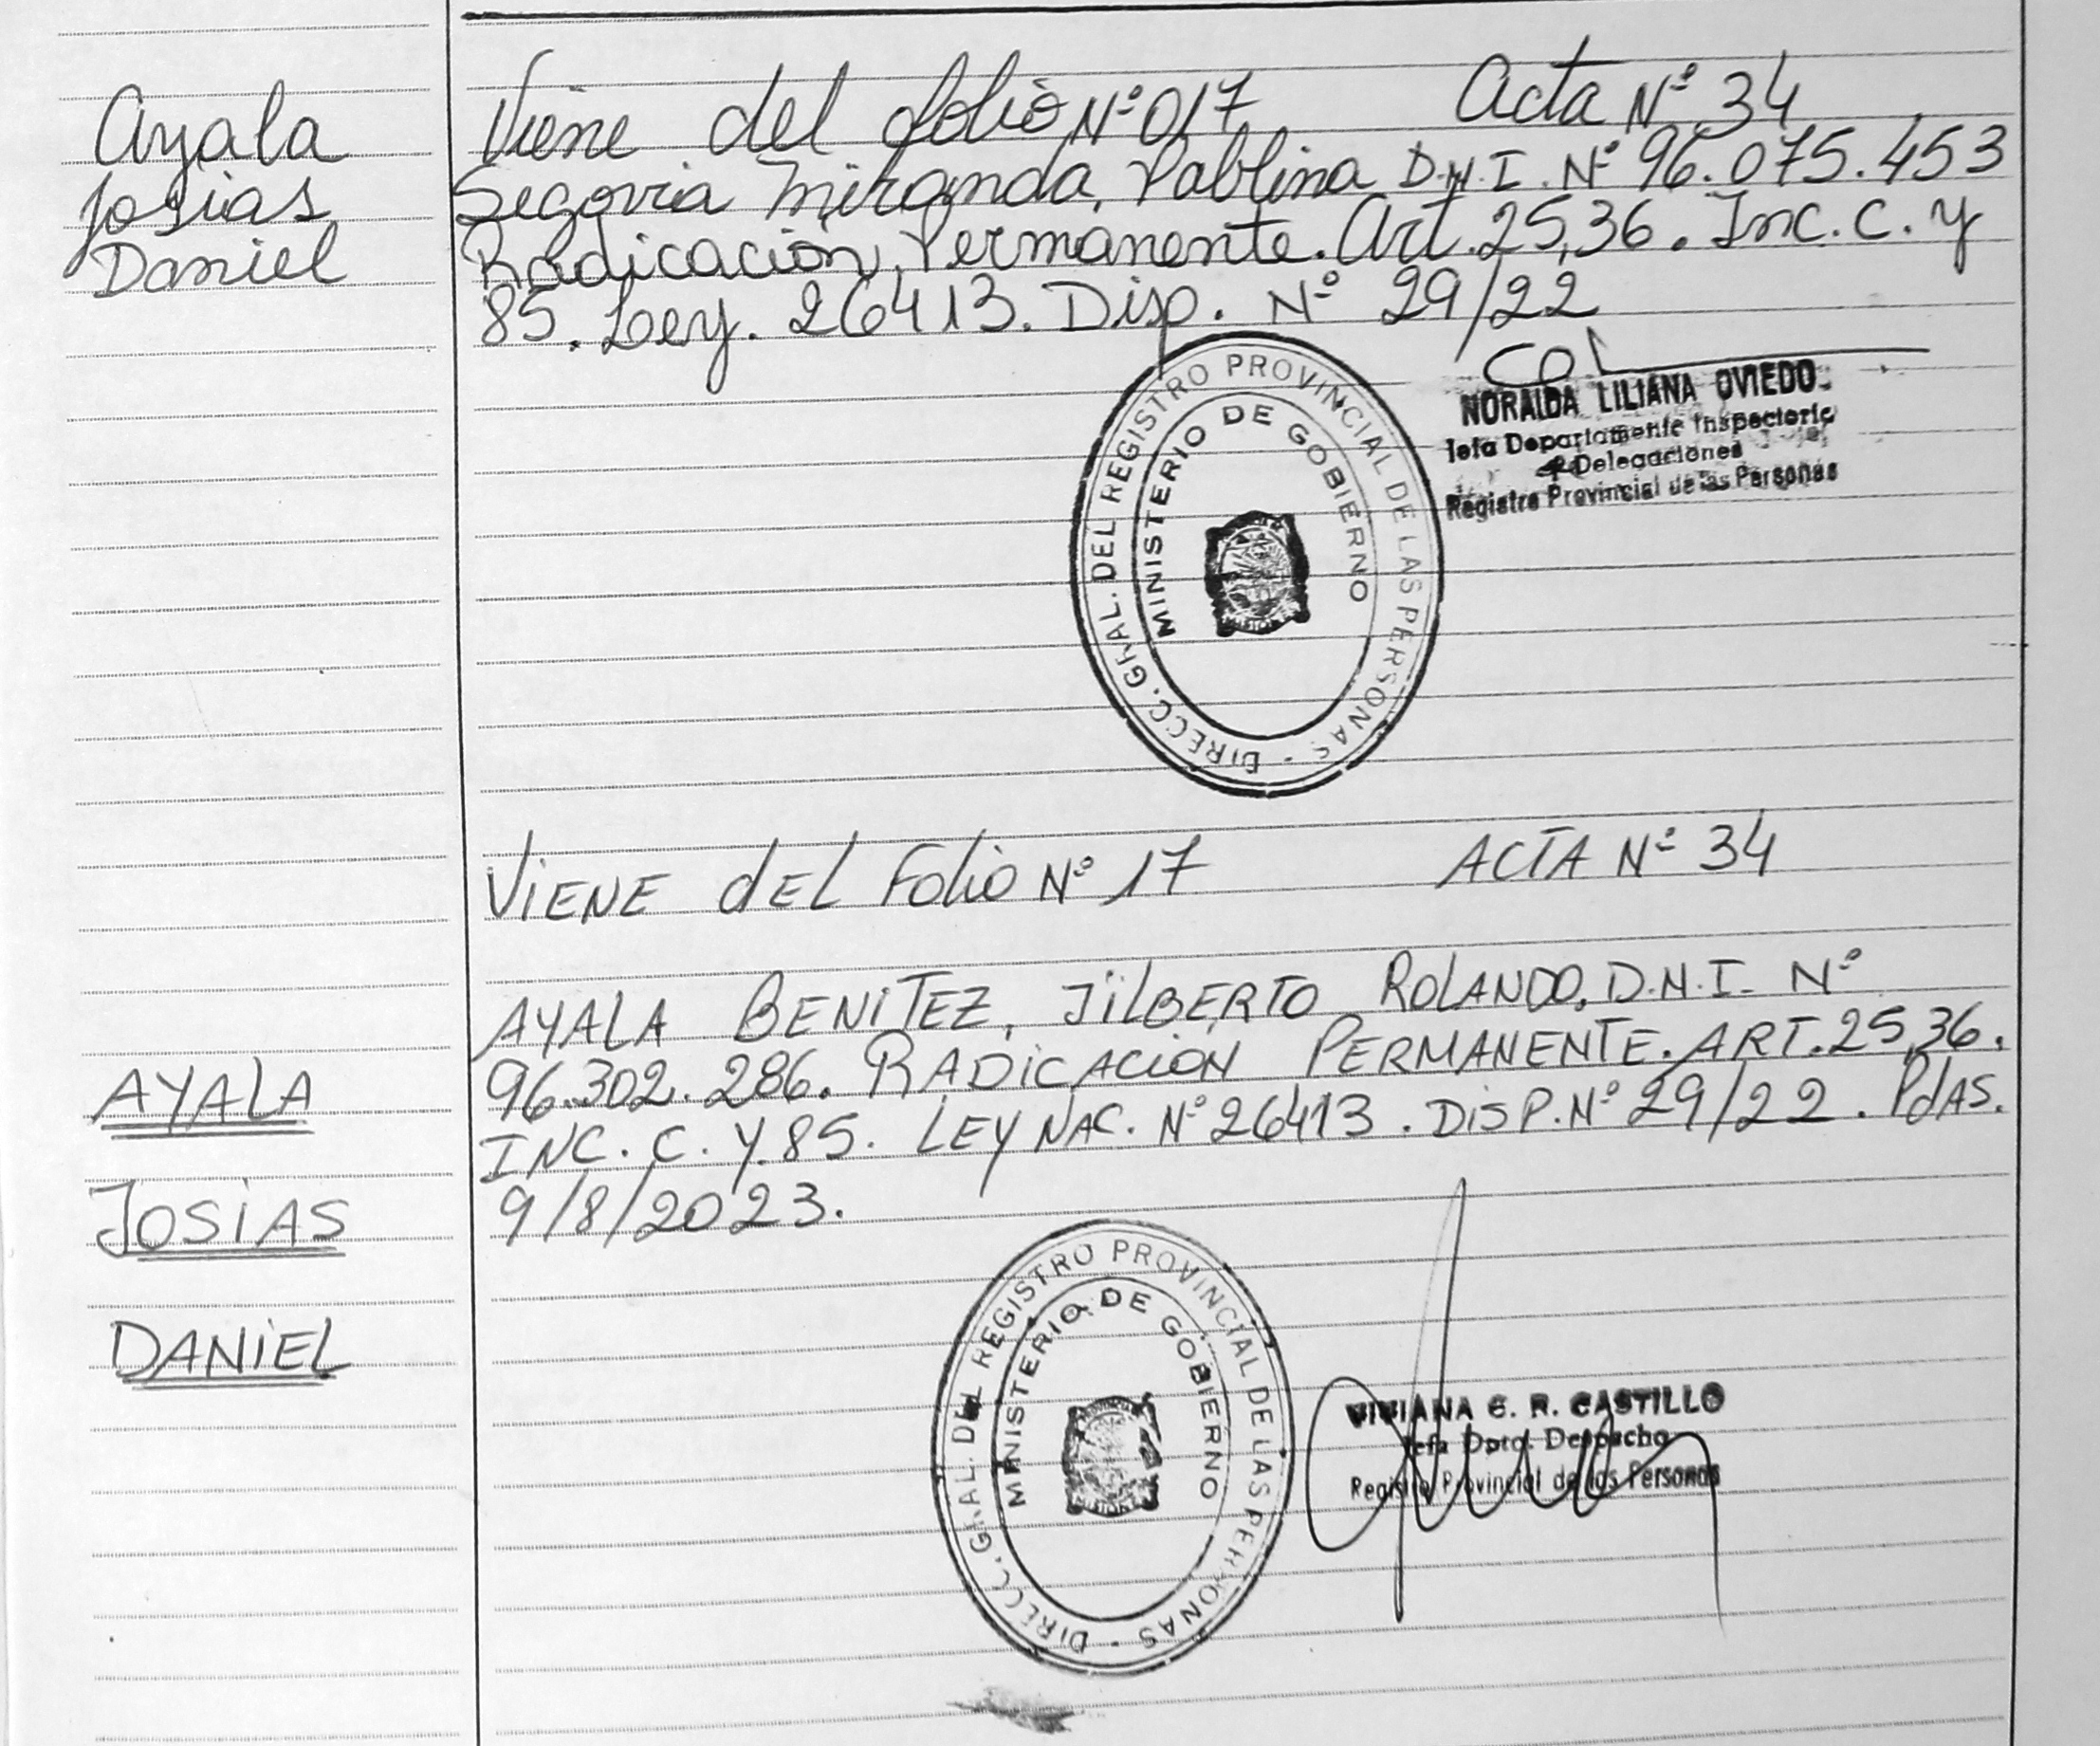 Ayala
Josias
Daniel
Viene del folio Nº 017 Acta Nº 34
Segovia Miranda, Pablina D.N.I. Nº 96.075.453
Radicación Permanente. Art. 25,36. Inc. C. y
85. Ley. 26413. Disp. Nº 29/22
NORAIDA LILIANA OVIEDO
Jefa Departamento Inspectoria
y Delegaciones
Registro Provincial de las Personas
DIRECC. GRAL. DEL REGISTRO PROVINCIAL DE LAS PERSONAS
MINISTERIO DE GOBIERNO
VIENE dEL Folio Nº 17 ACTA Nº 34
AYALA
JOSIAS
DANIEL
AYALA BENITEZ, JILBERTO ROLANDO, D.N.I. Nº
96.302.286. RADICACION PERMANENTE. ART. 25,36.
INC. C. Y 85. LEY NAC. Nº 26413. DISP. Nº 29/22. PdAS.
9/8/2023.
DIRECC. GRAL. DEL REGISTRO PROVINCIAL DE LAS PERSONAS
MINISTERIO DE GOBIERNO
VIVIANA E. R. CASTILLO
Jefa Dpto. Despacho
Registro Provincial de las Personas